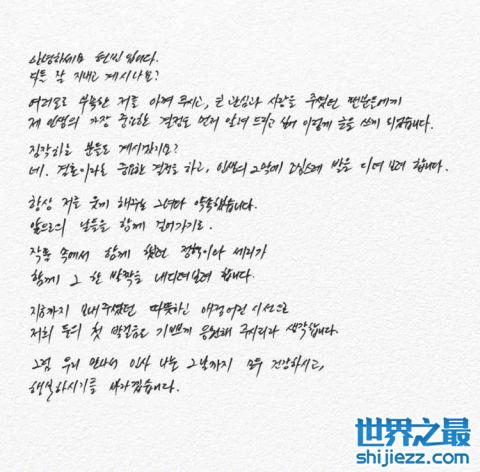 안녕하세요 현빈입니다.
다들 잘 지내고 계시나요?
여러모로 부족한 저를 아껴 주시고, 큰 관심과 사랑을 주셨던 팬분들에게
제 인생의 가장 중요한 결정을 먼저 알려 드리고 싶어 이렇게 글을 쓰게 되었습니다.
짐작하는 분들도 계시겠지요?
네. 결혼이라는 중요한 결정을 하고, 인생의 2막에 조심스레 발을 디뎌보려 합니다.
항상 저를 웃게 해주는 그녀와 약속했습니다.
앞으로의 날들을 함께 걸어가기로.
작품 속에서 함께 했던 정혁이와 세리가
함께 그 한 발짝을 내디뎌보려 합니다.
지금까지 보내주셨던 따뜻하고 애정어린 시선으로
저희 둘의 첫 발걸음도 기쁘게 응원해 주시리라 생각합니다.
그럼 우리 만나서 인사 나눌 그날까지 모두 건강하시고,
행복하시기를 바라겠습니다.
世界之最
shijiezz.com